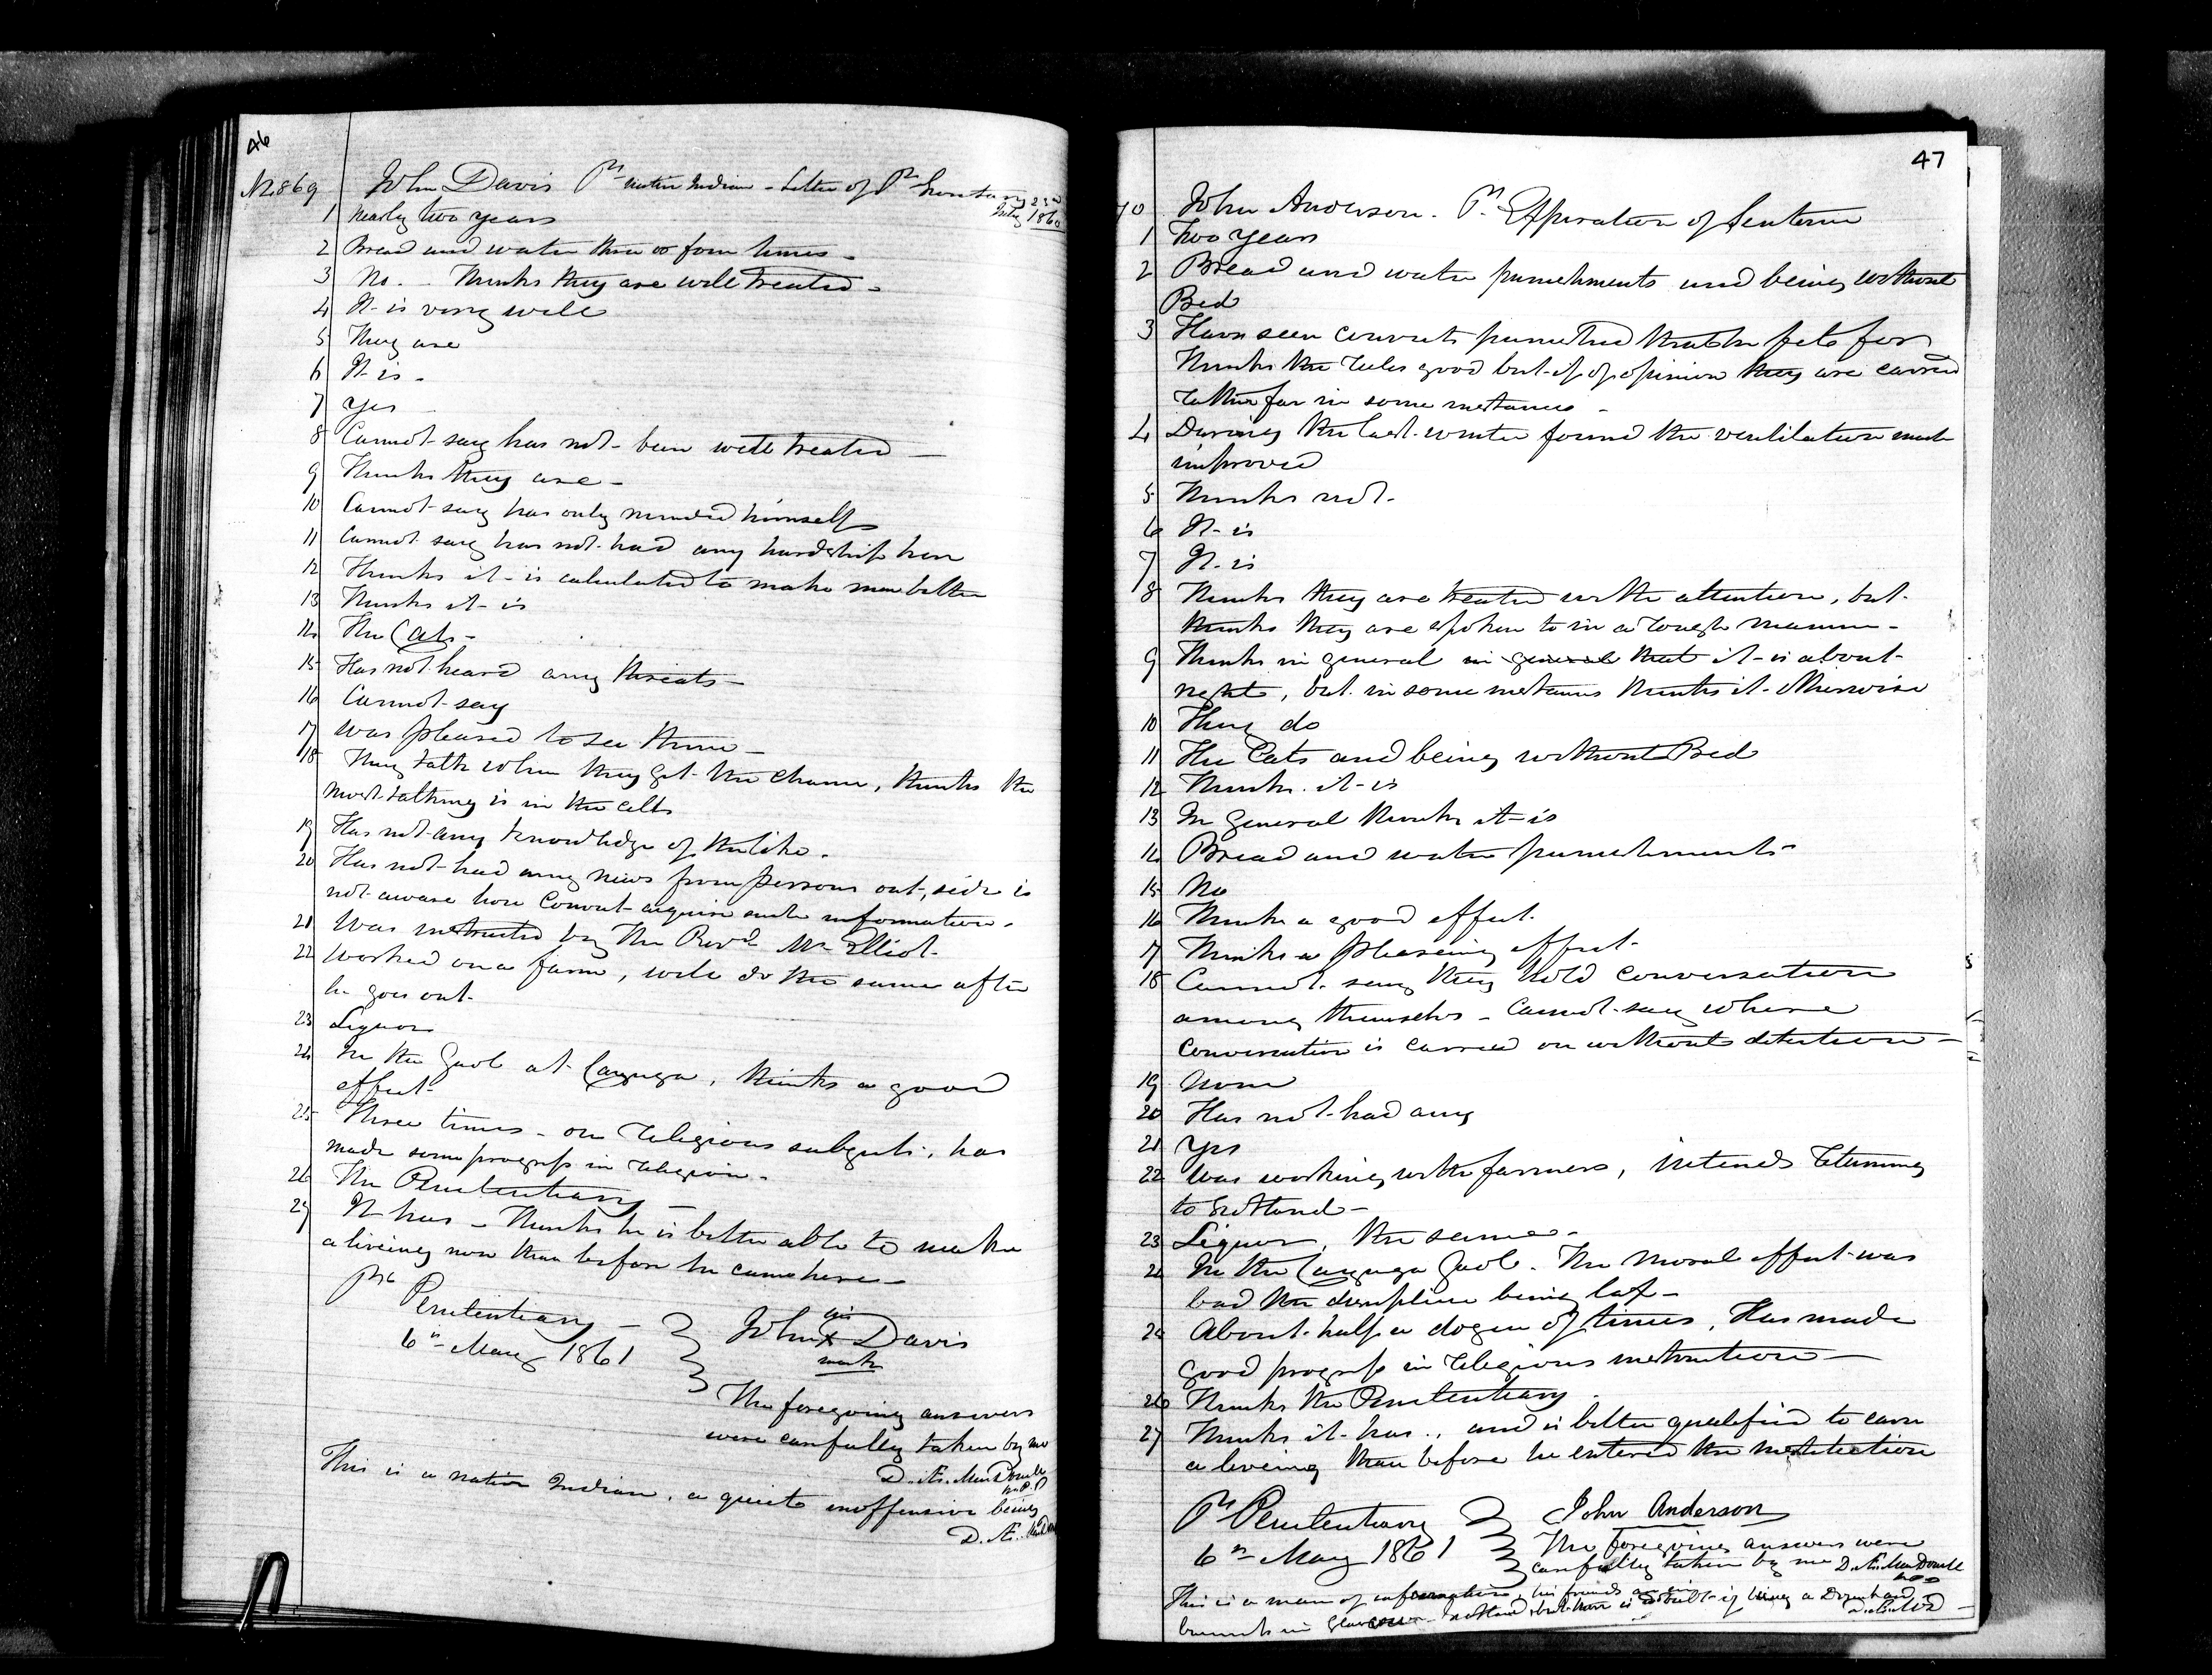 46
No. 869 John Davis Pr native Indian - Letter of Pr Secretary 23rd
July 1860
1 Nearly two years
2 Bread and water three or four times -
3 No. - Thinks they are well treated -
4 It is very well
5 They are
6 It is -
7 Yes
8 Cannot say has not been well treated -
9 Thinks they are -
10 Cannot say has only minded himself
11 Cannot say has not had any hardship here
12 Thinks it is calculated to make men better
13 Thinks it is
14 The Cats -
15 Has not heard any threats -
16 Cannot say
17 Was pleased to see them -
18 They talk when they get the chance, thinks the
most talking is in the cells
19 Has not any knowledge of the like.
20 Has not had any news from persons out-side is
not aware how Convict acquire such information.
21 Was instructed by The Revd Mr Elliot.
22 Worked on a farm, will do the same after
he goes out.
23 Liquor
24 In the Gaol at Cayuga, thinks a good
effect
25 Three times - on Religious subjects, has
made some progress in Religion.
26 The Penitentiary -
27 It has - Thinks he is better able to make
a liveing now than before he came here -
Penitentiary -
6th May 1861
his
John X Davis
mark
The foregoing answers
were carefully taken by me
D. Æ. MacDonell
This is a native Indian, a quiet inoffensive being
D. Æ.
47
70 John Anderson. Pr Expiration of Sentence
1 Two Years
2 Bread and water punishments and being without
Bed
3 Have seen convicts punished that he felt for
Thinks the rules good but of opinion they are carried
rather far in some instances -
4 During the last winter found the ventilation much
improved
5 Thinks not.
6 It is
7 It is
8 Thinks they are treated with attention, but
thinks they are spoken to in a rough manner -
9 Thinks in general in general that it is about
right, but in some instances thinks it otherwise
10 They do
11 The Cats and being without Bed
12 Thinks it is
13 In general thinks it is
14 Bread and water punishments
15 No
16 Thinks a good effect.
17 Thinks a pleaseing effect
18 Cannot say they hold conversation
among themselves - Cannot say where
conversation is carried on without detection -
19 None
20 Has not had any
21 Yes
22 Was working with farmers, intends returning
to Scotland -
23 Liquor, the same -
24 In the Cayuga Gaol. The Moral effect was
bad the discipline being lax -
25 About half a dozen of times, Has made
good progress in religious instruction -
26 Thinks the Penitentiary
27 Thinks it has, and is better qualified to earn
a liveing than before he entered the institution
Penitentiary
6th May 1861
John Anderson
The foregoing answers were
carefully taken by me D. Æ. MacDonell
This is a man of information, his friends are in
business in Glasgow Scotland, but there is a doubt of being a Drunkard